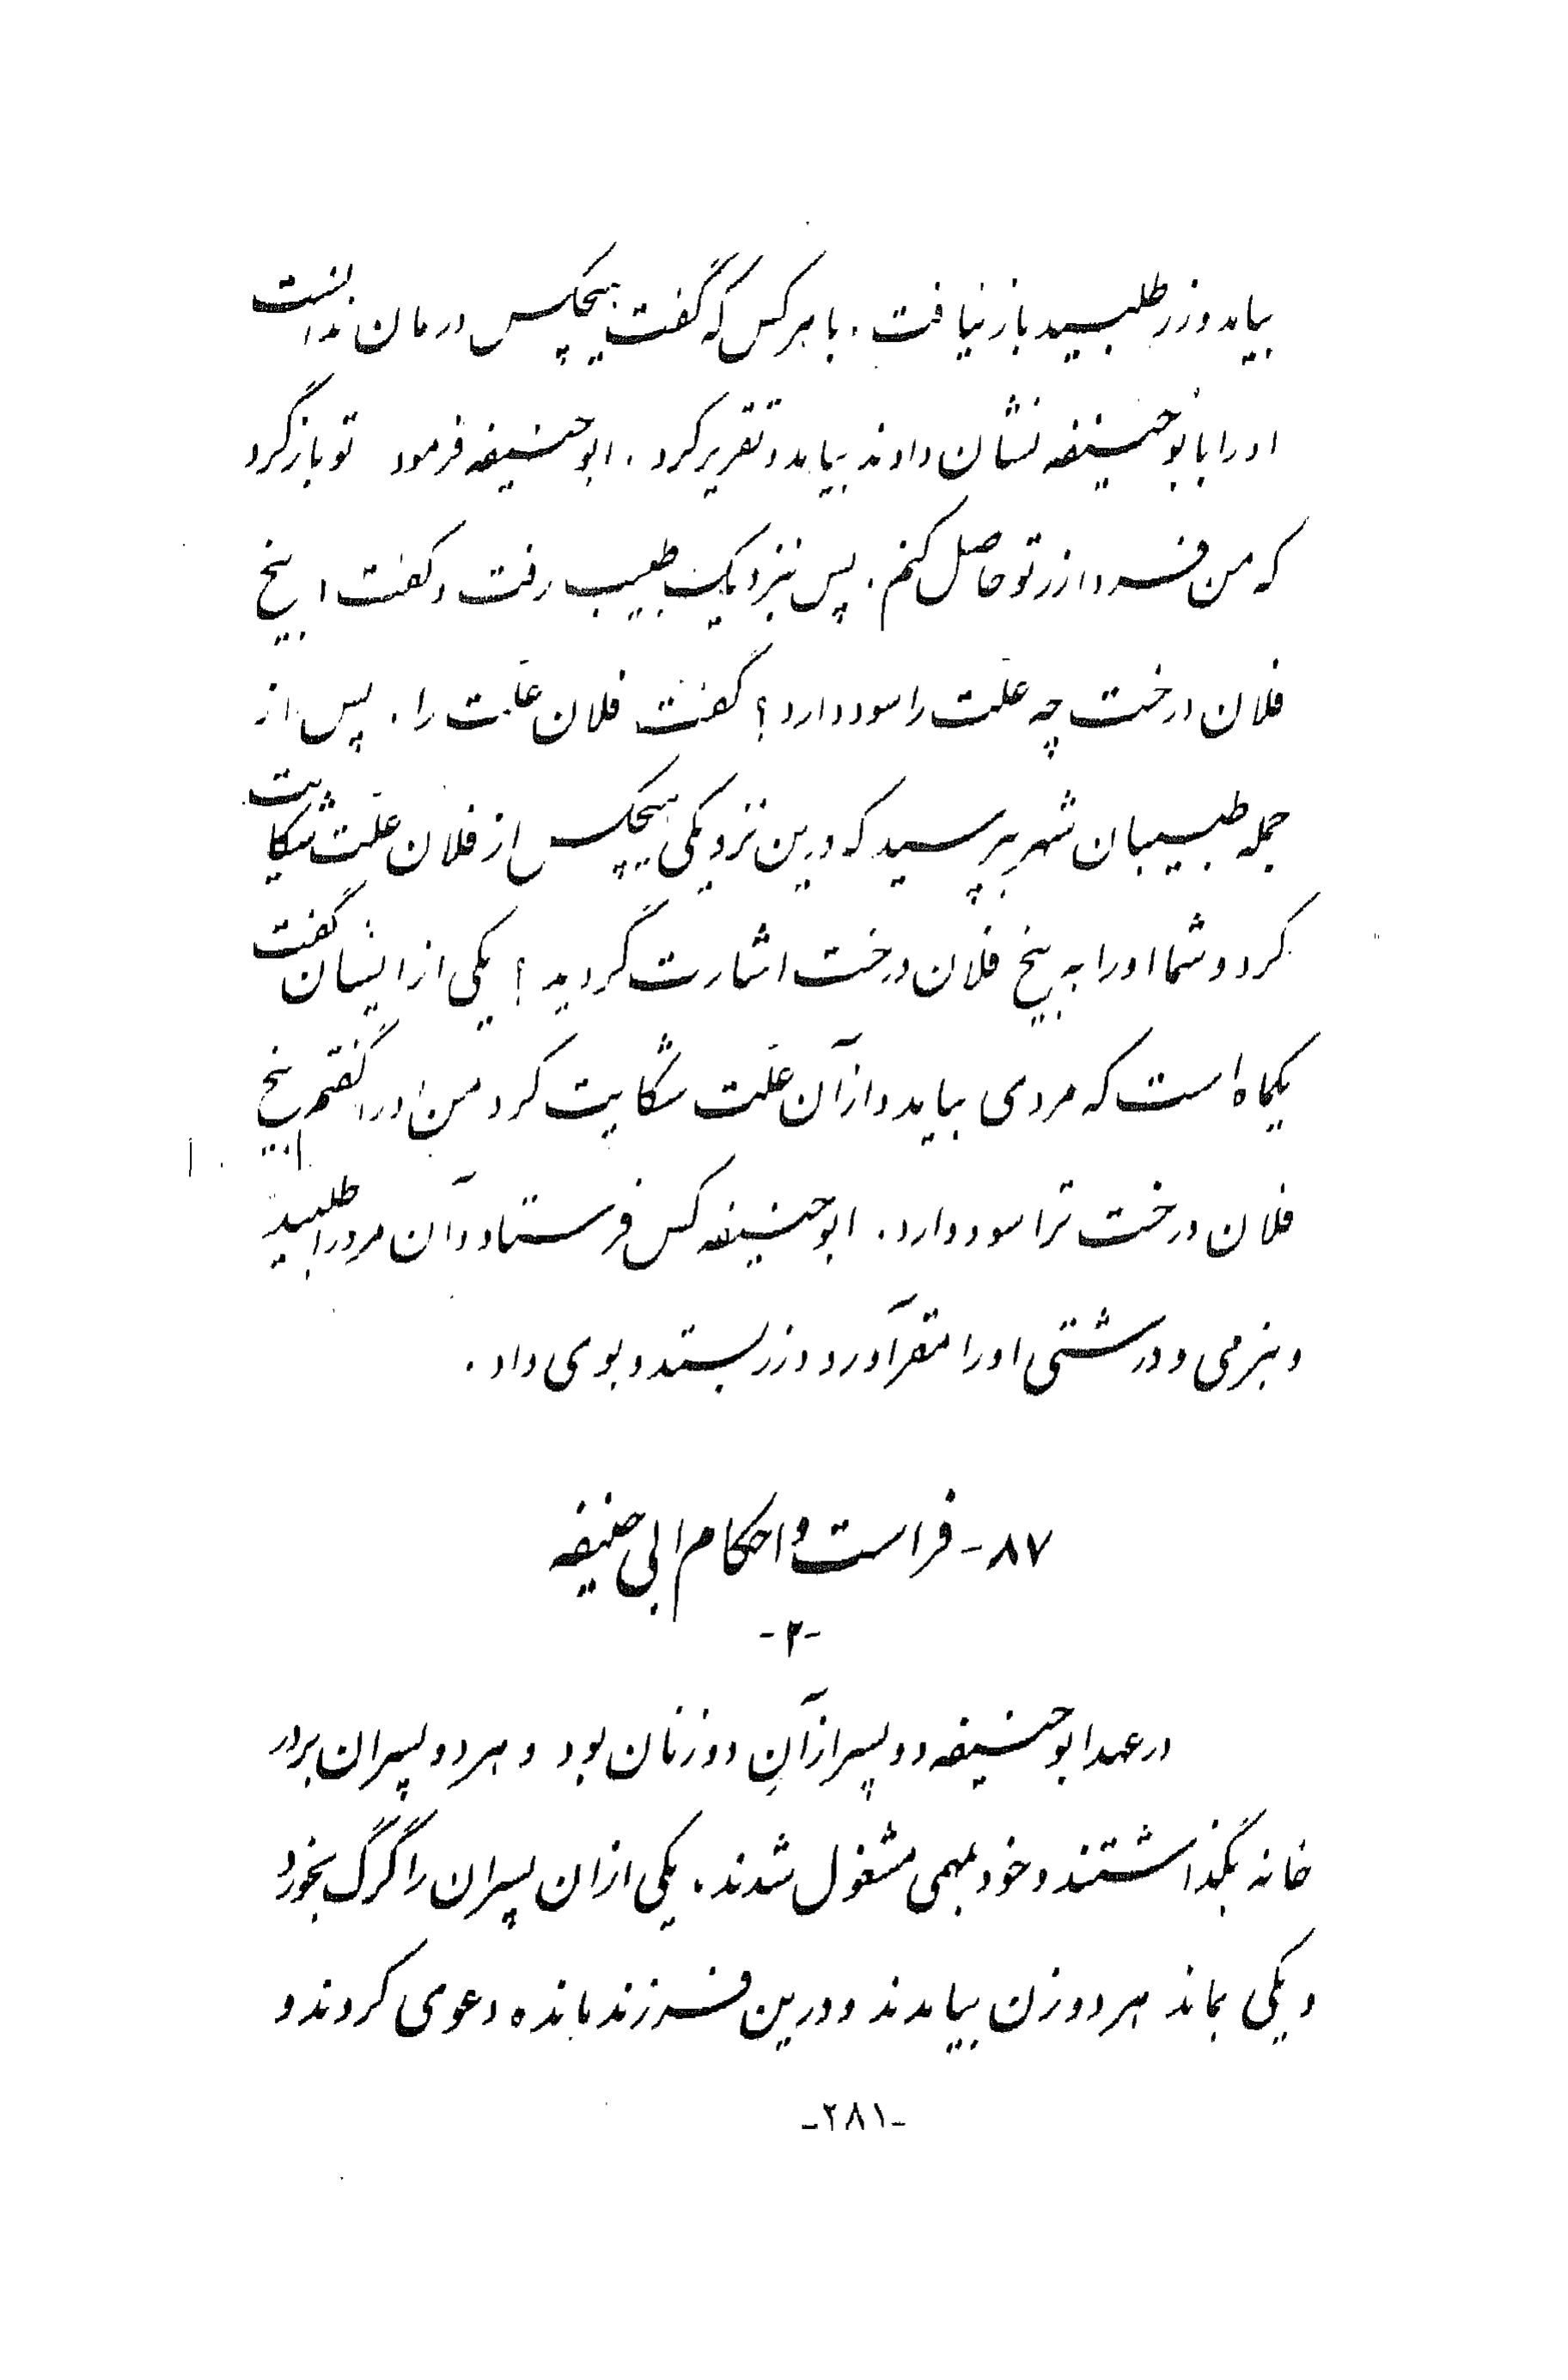 بیامد و زر طلبید باز نیافت. با هر کس که گفت هیچکس درمان ندانست
او را بابوحنیفه نشان دادند بیامد و تقریر کرد. ابوحنیفه فرمود تو بازگرد
که من فردا زر تو حاصل کنم. پس بنزدیک طبیب رفت و گفت ا بیخ
فلان درخت چه علّت را سود دارد؟ گفت فلان علّت را. پس از
جمله طبیبان شهر بپرسید که درین نزدیکی هیچکس از فلان علّت شکایت
کرد و شما او را به بیخ فلان درخت اشارت گردید؟ یکی از ایشان گفت
یکماه است که مردی بیامد و از آن علّت شکایت کرد من او را گفتم بیخ
فلان درخت ترا سود دارد. ابوحنیفه کس فرستاد و آن مرد را طلبید
و بنرمی و درشتی او را مقر آورد و زر بستد و بوی داد.
۸۷- فراست و احکام ابی حنیفه
-۲-
در عهد ابوحنیفه دو پسر از آنِ دو زنان بود و هر دو پسران بر در
خانه بگذاشتند و خود بمهمی مشغول شدند. یکی ازان پسران را گرگ بخورد
و یکی بماند هر دو زن بیامدند و درین فرزند مانده دعوی کردند و
-۲۸۱-